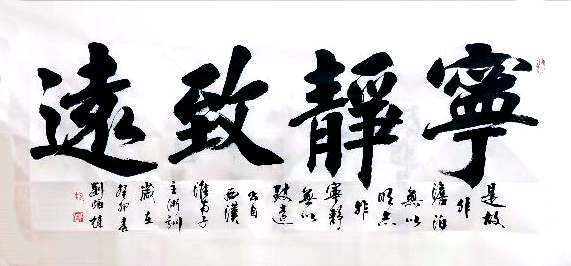 寧靜致遠
是故
非
澹泊
無以
明志
非
寧靜
無以
致遠
出自
西漢
淮南子
主術訓
歲在
癸卯春
劉